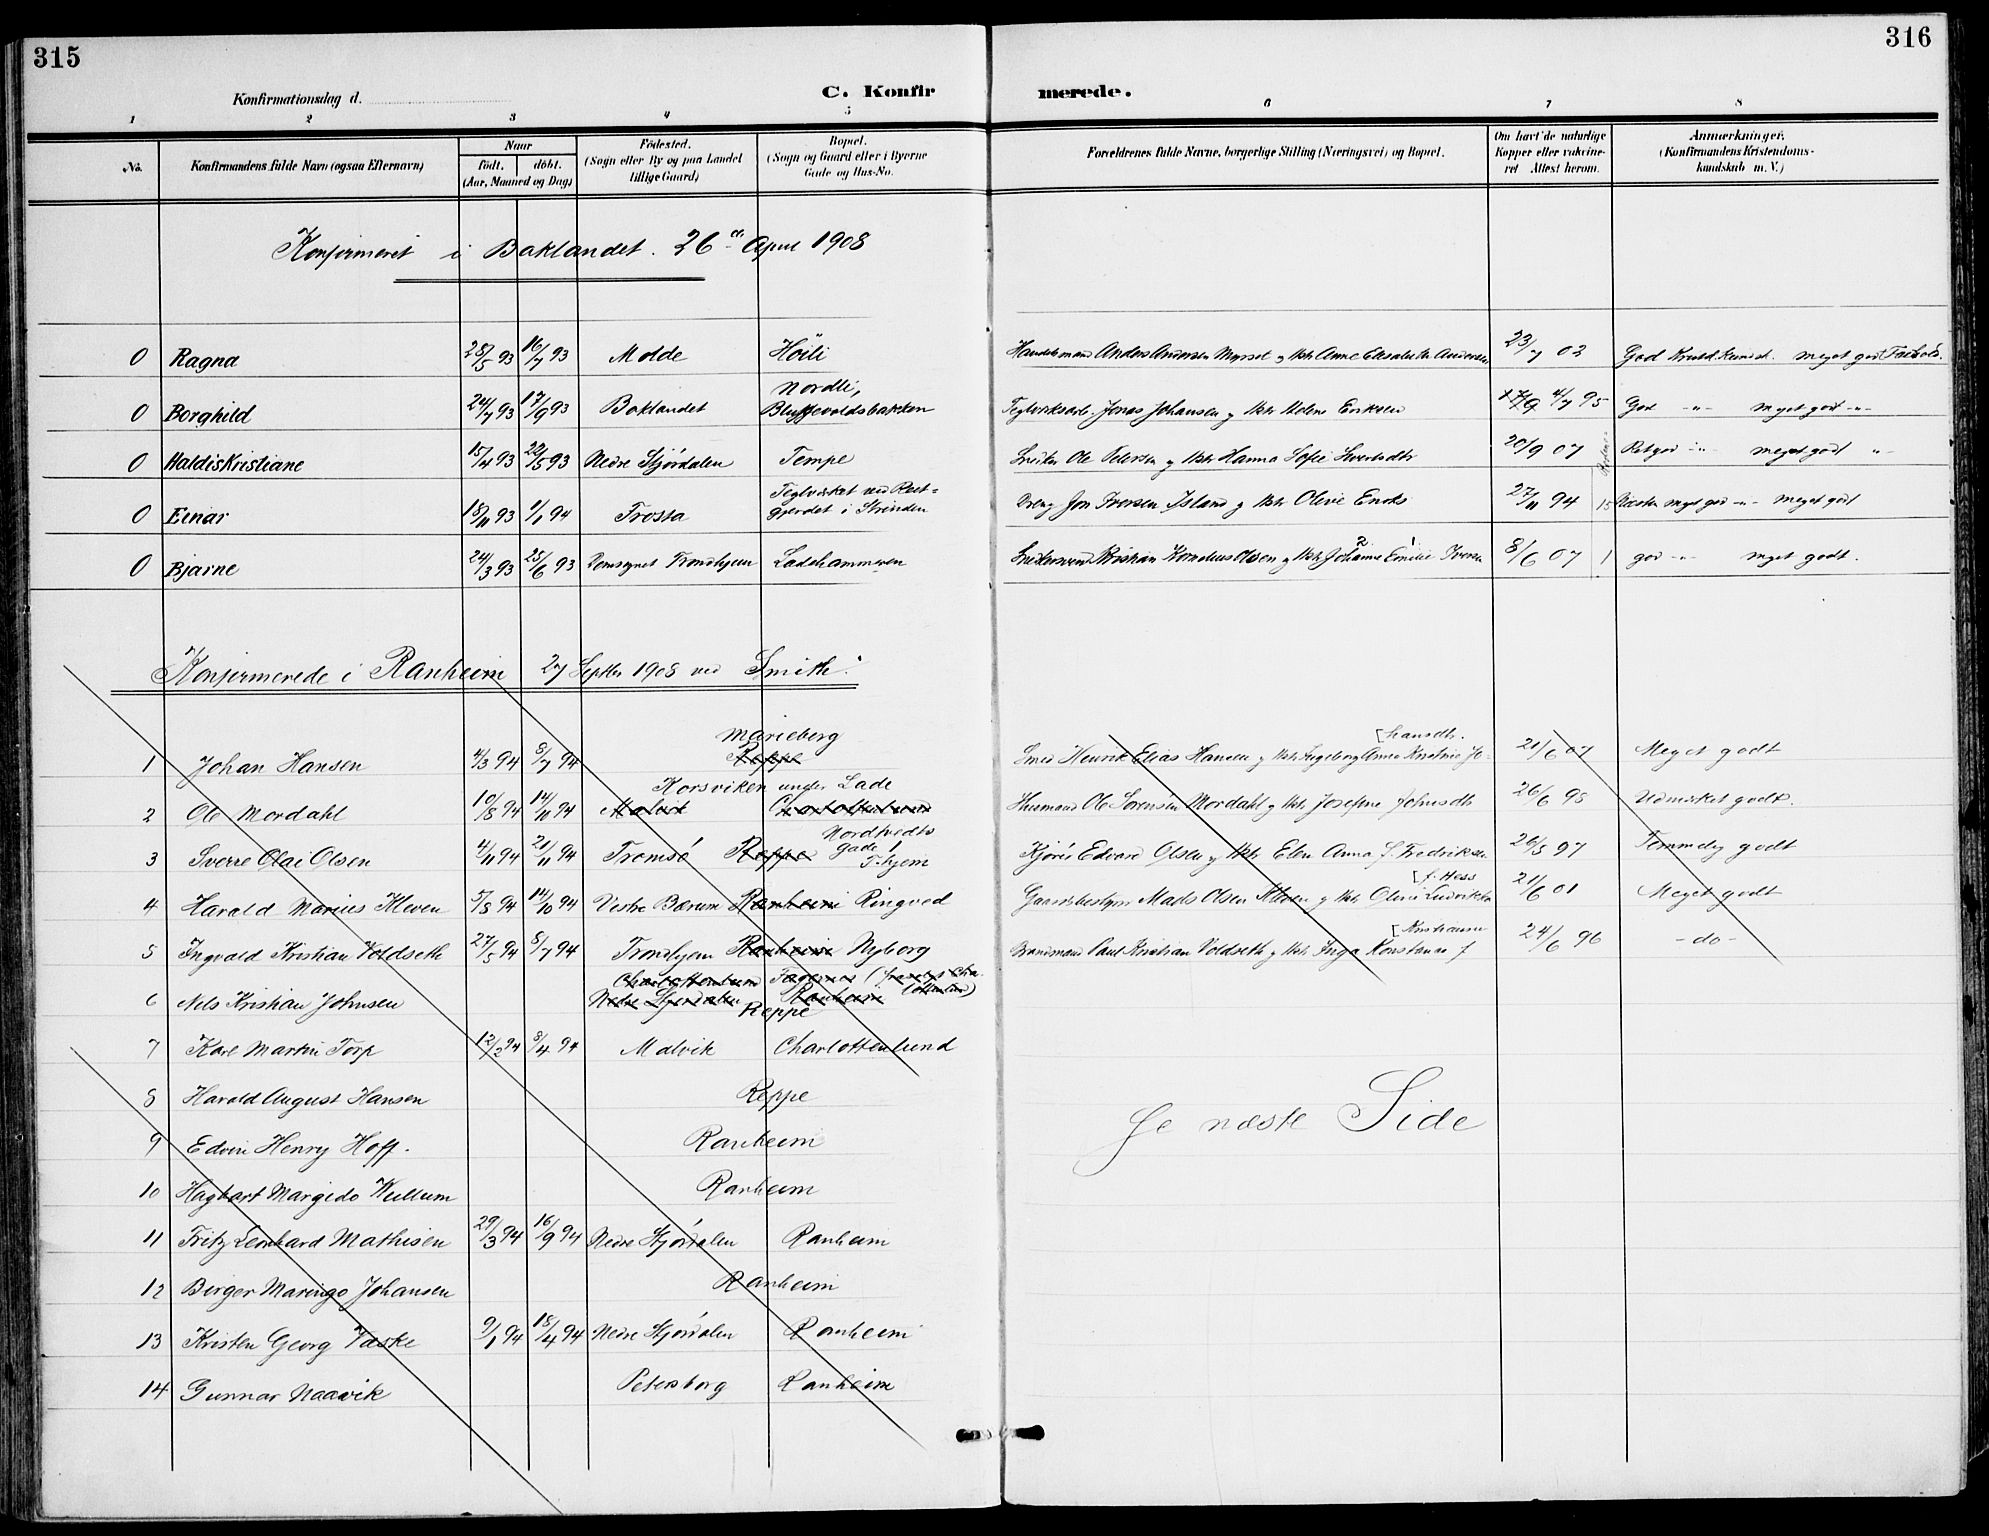 315
316
Konfirmationsdag d.
C. Konfir
merede.
1 2 3 4 5 6 7 8
No.
Konfirmandens fulde Navn (ogsaa Efternavn)
Naar
født. døbt.
(Aar, Maaned og Dag)
Fødested.
(Sogn eller By og paa Landet
tillige Gaard)
Bopæl.
(Sogn og Gaard eller i Byerne
Gade og Hus-No.
Forældrenes fulde Navne, borgerlige Stilling (Næringsvei) og Bopæl.
Om havt de naturlige
Kopper eller vakcine-
ret Attest herom.
Anmærkninger.
(Konfirmandens Kristendoms-
kundskab m. V.)
Konfirmeret i Baklandet. 26 April 1908
0 Ragna 28/5 93 16/7 93 Molde Höili Anders Andersen Myrset og Anne Elisabeth Andersen 23/7 02 God Kristd. Kundsk. meget god Forhold.
Nordli,
0 Borghild 24/7 93 17/9 93 Baklandet Blussevoldsbakken Teglverksarb. Jonas Johansen og Helene Eriksen 4/7 95 God -"- meget god -"-
0 Haldis Kristiane 15/4 93 22/5 93 Nedre Stjørdalen Tempe Snekker Ole Petersen og Hanna Sofie 20/9 07 Ret god -"- meget god "
Teglverket ved Rost=
0 Einar 18/11 93 1/1 94 Frosta gjerdet i Strinden Jon Iversen Island og Olive 27/11 94 15 Næsten meget god -"- meget god
0 Bjarne 24/3 93 25/6 93 Domsognet Trondhjem Ladehammeren Kristian Kornelius Olsen og Johanne Emilie Iversen 8/6 07 1 god -"- meget godt.
Konfirmerede i Ranheim 27 Septbr 1908 ved Smith.
Marieberg
1 Johan Hansen 4/3 94 8/7 94 Reppe Smed Henrik Elias Hansen og Ingeborg Anna Kristine Jo- [hansdtr. 21/6 07 Meget godt
Korsviken under Lade
2 Ole Mordahl 10/8 94 14/11 94 Malvik Charlottenlund Husmand Ole Sørensen Mordahl og Josefine Johnsdtr 26/6 95 Udmerket godt.
Nordtvedts
gade 1
3 Sverre Olai Olsen 4/11 94 21/11 94 Tromsö Reppe T.hjem Kjører Edvard Olsen og Elen Anna f. Fredriksen 26/5 97 Temmelig godt
4 Harald Marius Kleven 5/8 94 14/10 94 Vestre Bærum Ranheim Ringved Gaardsbestyrer Mads Olsen Kleven og Olivie [f. Hess 21/6 01 Meget godt
5 Ingvald Kristian Voldseth 27/5 94 8/7 94 Trondhjem Ranheim Nyborg Brandmand Paul Kristian Voldseth og Inga Konstanse f [Kristiansen 24/6 96 -do-
Charlottenlund
6 Nels Kristian Johnsen Nedre Stjørdalen Ranheim
Reppe
7 Karl Martin Torp 12/2 94 8/4 94 Malvik Charlottenlund
8 Harald August Hansen Reppe
9 Edvin Henry Hoff. Ranheim
10 Hagbart Margido Kullum Ranheim
11 Fritz Leonhard Mathisen 29/3 94 16/9 94 Nedre Stjørdalen Ranheim
12 Birger Maringo Johansen Ranheim
13 Kristen Georg Vaske 9/1 94 18/4 94 Nedre Stjørdalen Ranheim
14 Gunnar Naavik Petersborg Ranheim
Se næste Side